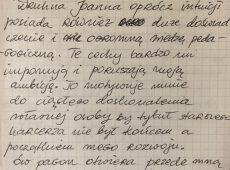 Druhna Joanna oprócz intuicji
posiada również duże doświad
czenie i ogromną wiedzę peda-
gogiczną. Te cechy bardzo mi
imponują i poruszają moją
ambicję. To motywuje mnie
do ciągłego doskonalenia
własnej osoby by tytuł starszego
harcerza nie był końcem a
początkiem mego rozwoju.
otwiera przede mną